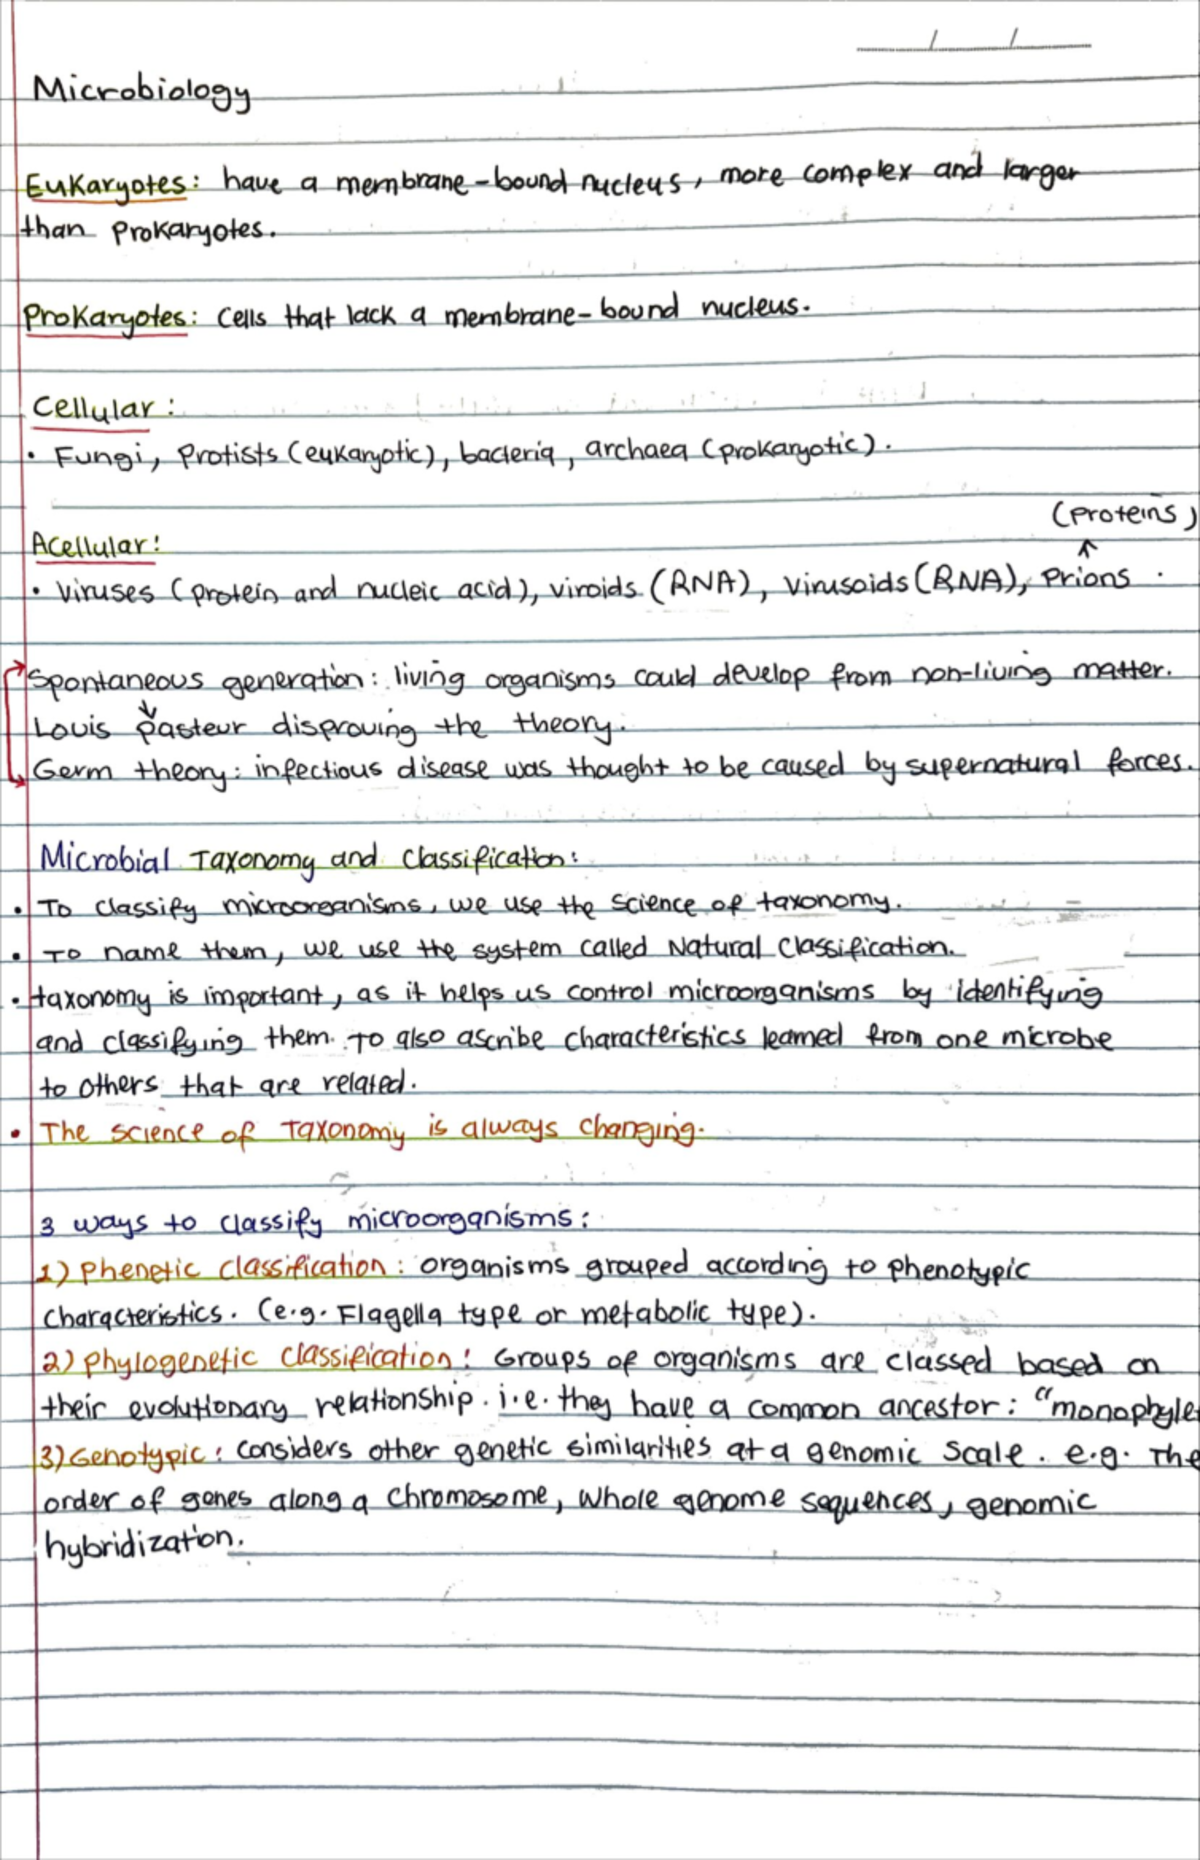 Microbiology
Eukaryotes: have a membrane-bound nucleus, more complex and larger
than prokaryotes.
Prokaryotes: cells that lack a membrane-bound nucleus.
Cellular:
• Fungi, Protists (eukaryotic), bacteria, archaea (prokaryotic).
(proteins)
Acellular:
• Viruses (protein and nucleic acid), viroids (RNA), virusoids (RNA), Prions.
Spontaneous generation: living organisms could develop from non-living matter.
Louis Pasteur disproving the theory.
Germ theory: infectious disease was thought to be caused by supernatural forces.
Microbial Taxonomy and Classification:
• To classify microorganisms, we use the science of taxonomy.
• To name them, we use the system called Natural Classification.
• taxonomy is important, as it helps us control microorganisms by identifying
and classifying them. To also ascribe characteristics learned from one microbe
to others that are related.
• The science of Taxonomy is always changing.
3 ways to classify microorganisms:
1) Phenetic classification: organisms grouped according to phenotypic
characteristics. (e.g. Flagella type or metabolic type).
2) Phylogenetic classification: Groups of organisms are classed based on
their evolutionary relationship. i.e. they have a common ancestor: "monophylet
3) Genotypic: considers other genetic similarities at a genomic scale. e.g. The
order of genes along a chromosome, whole genome sequences, genomic
hybridization.